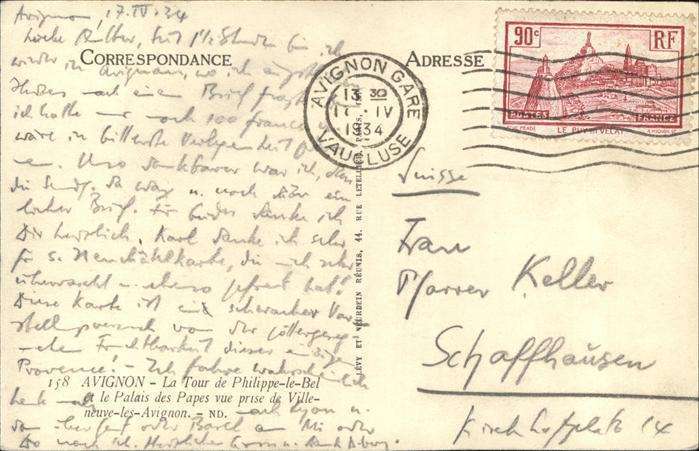 Avignon 17.IV.34
Liebe Mutter, seit 1½ Stunden bin ich
wieder in Avignon, wo ich
nach einem Brief
ich hatte nur noch 100 francs
wäre in bitterste Verlegenheit
Umso dankbarer war ich, dass
die Sendg. da war u. noch dazu ein
lieber Brief. Für beides danke ich
Dir herzlich. Karl danke ich sehr
für s. Neuchâtelkarte, die mich sehr
überrascht u. ebenso gefreut hat!
Diese Karte ist ein schwacher Vor
von der
Fruchtbarkeit dieser
Provence! - Ich fahre wahrscheinlich
heute
nach Lyon u.
oder Basel am Mi oder
Do nach Sch. Herzlichen Gruss u.
CORRESPONDANCE
ADRESSE
AVIGNON GARE
13 30
17 - IV
1934
VAUCLUSE
90c
RF
POSTES
FRANCE
LE PUY-EN-VELAY
LÉVY ET NEURDEIN RÉUNIS, 44, RUE LETELLIER, PARIS
Suisse
Frau
Pfarrer Keller
Schaffhausen
Kirchhofplatz 14
158 AVIGNON - La Tour de Philippe-le-Bel
et le Palais des Papes vue prise de Ville-
neuve-les-Avignon. - ND.